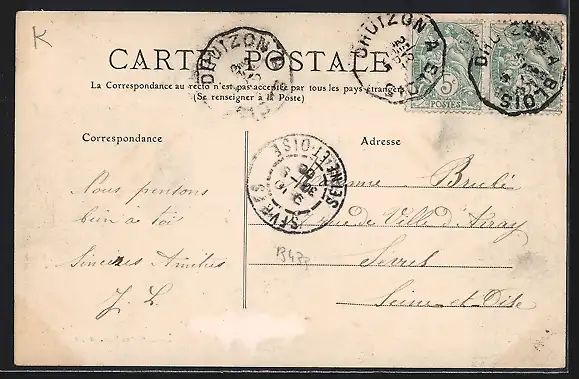 K
CARTE POSTALE
DHUIZON A BLOIS
DHUIZON A BLOIS
DHUIZON A BLOIS
5
POSTES
La Correspondance au recto n'est pas acceptée par tous les pays étrangers
(Se renseigner à la Poste)
Correspondance
Adresse
SEVRES
SEINE-ET-OISE
Nous pensons
bien a toi
Sincères Amitiés
J. L.
Brulé
rue de Ville d'Avray
Sevres
Seine-et-Oise